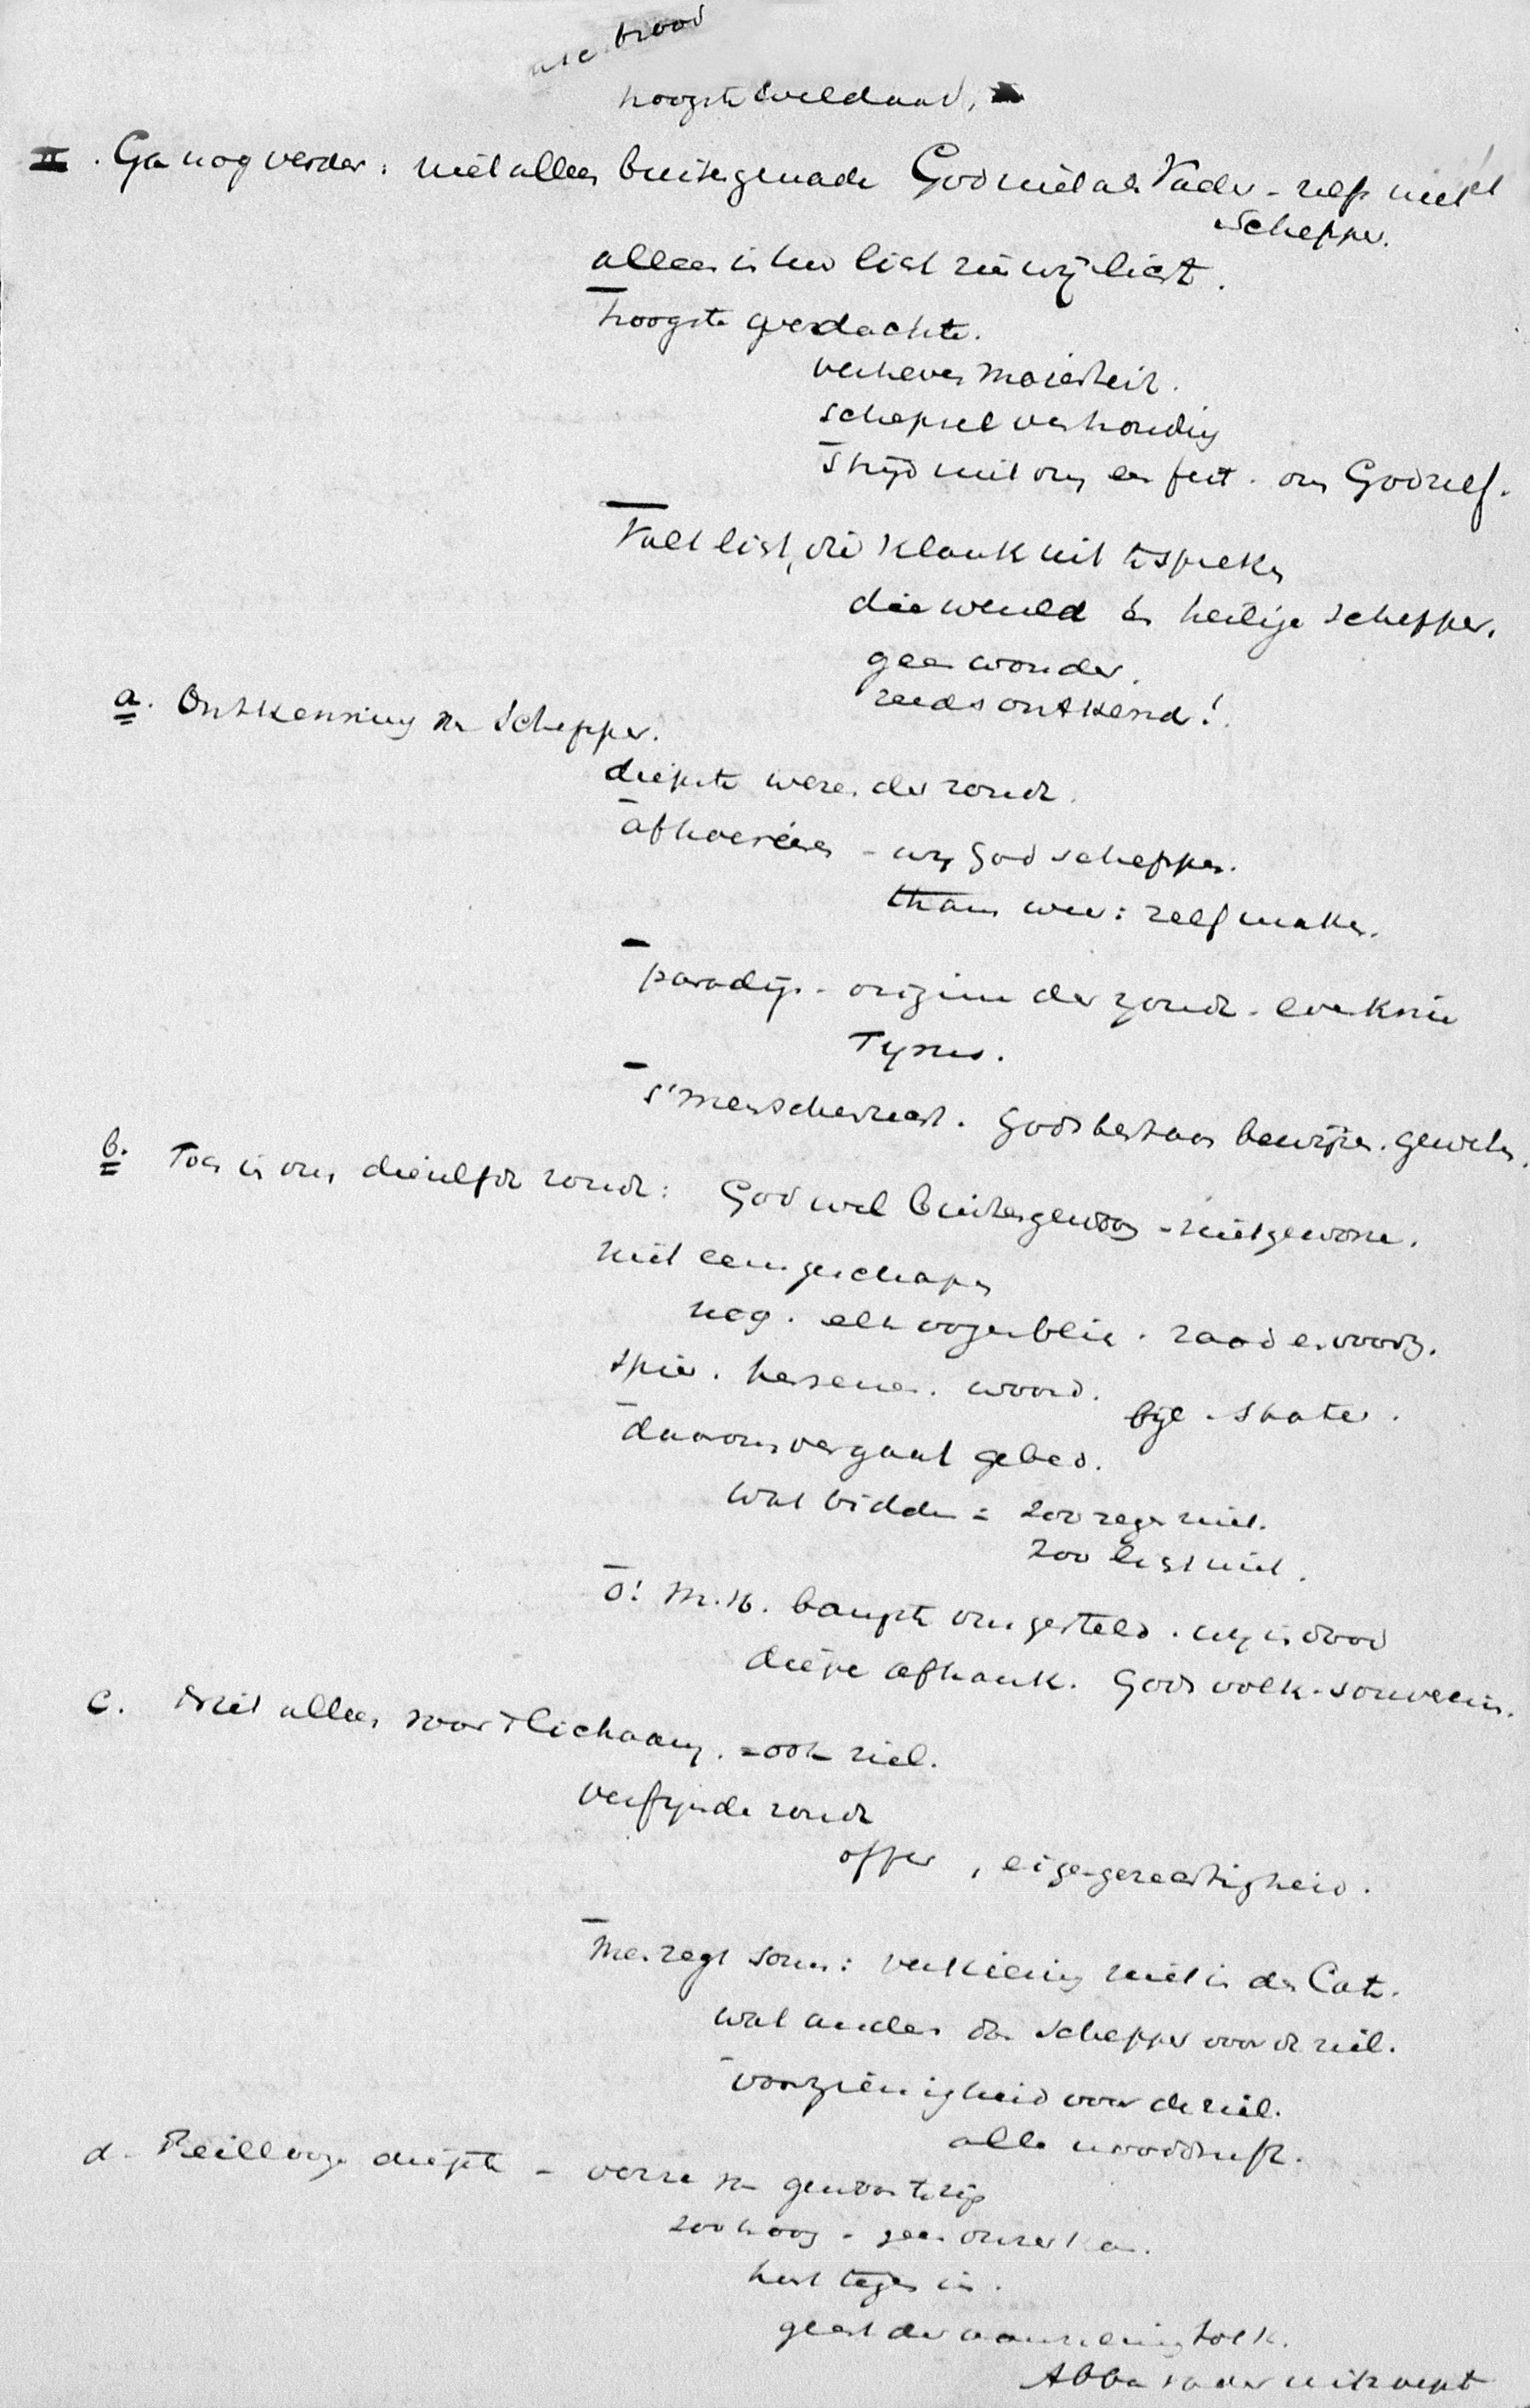 brood
hoogste weldaad,
II. Ga nog verder: niet alleen buiten genade God niet als Vader - zelfs niet als
Schepper.
alleen in uw licht zien wij licht.
hoogste gedachte.
verheven majesteit.
schepsel verhouding
Strijd niet om een feit. om God zelf.
Valt licht, die klank uit te spreken
die wereld en heilige schepper.
geen wonder.
reeds ontkend!
a. Ontkenning v. Schepper.
diepste wezen der zonde.
afhoereeren - wij God schepper.
thans weer: zelf maken.
paradijs - origine der zonde. eveknie
Tyrus.
's menschen hart. Gods bestaan bewijzen.
b. Toch is ons die zelfde zonde: God wel buitengewoon - niet gewone.
niet eens geschapen
nog. elk oogenblik. raad en woord.
spier. hersenen. woord.
bijl. snater.
daarom vergaat gebed.
wat bidden = zoo zegen niet.
zoo licht niet.
O! M.H. bangste ons gesteld. wij in dood
diepe afhank. Gods volk. souverein.
c. Niet alleen voor 't lichaam. - ook ziel.
verfijnde zonde
offer, eigengerechtigheid.
Men zegt soms: verkiezing niet in den Cat.
wat anders dan schepper voor de ziel.
voorzienigheid voor de ziel.
alle nooddruft.
d. Peillooze diepte - verre van gewoon te zijn
zoo hoog - geen onzer kan.
hart tegen in.
geest der aanneming tolk.
Abba vader uitroept